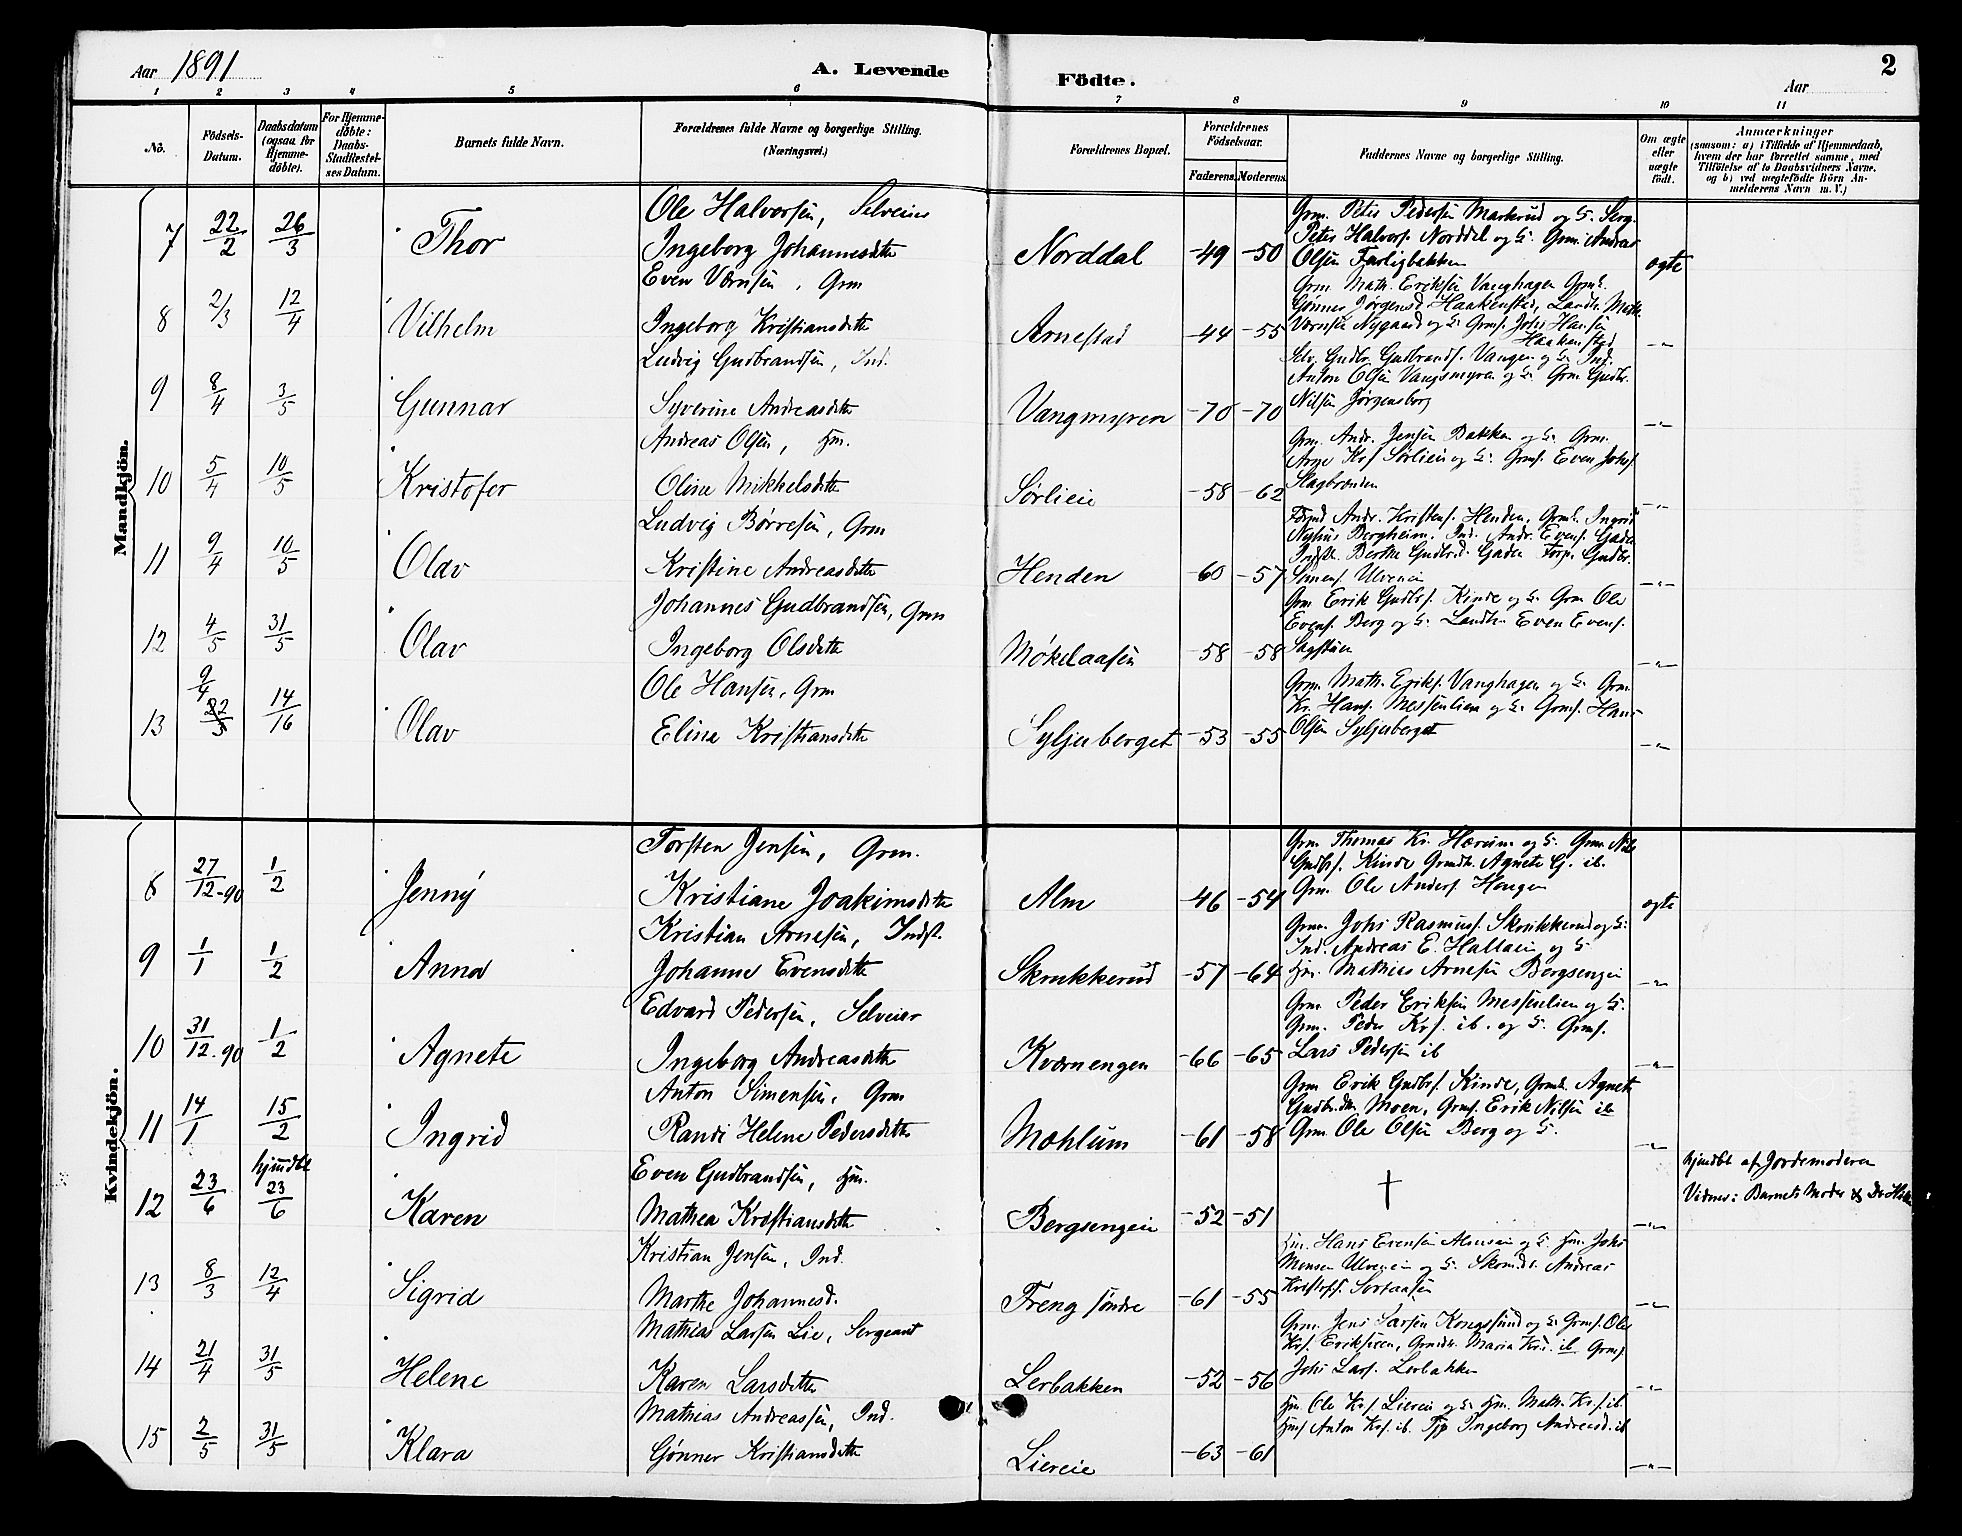 Aar 1891
A. Levende
Födte.
Aar
2
1 2 3 4 5 6 7 8 9 10 11
No.
Födsels-Datum.
Daabsdatum (ogsaa for Hjemme-döbte).
For Hjemme-döbte: Daabs-Stadfæstel-ses Datum.
Barnets fulde Navn.
Forældrenes fulde Navne og borgerlige Stilling. (Næringsvei.)
Forældrenes Bopæl.
Forældrenes Födselsaar.
Faderens. Moderens.
Faddernes Navne og borgerlige Stilling.
Om ægte eller uægte födt.
Anmærkninger
(saasom: a) i Tilfælde af Hjemmedaab, hvem der har forrettet samme, med Tilföielse af to Daabsvidners Navne, og b) ved uægtefödte Börn An-melderens Navn m. V.)
Mandkjön.
7 22/2 26/3 Thor
Ole Halvorsen, Selveier
Ingeborg Johannesdtr
Norddal -49 -50
Grm. Peter Pedersen Markrud og H. Serg.
Peter Halvors. Norddal og H. Grm. Andreas
Olsen Farligbakken
ægte
8 2/3 12/4 Vilhelm
Even Børresen, Grm
Ingeborg Kristiansdtr
Arnestad -44 -55
Grm. Math. Eriksen Vanghagen Grmk.
Gønner Jørgensd. Haakenstad, Landh. Math.
Nygaard og H. Grms. Johs Hansen
Haakenstad
-"-
9 8/4 3/5 Gunnar
Ludvig Gudbrandsen, Ind.
Syverine Andreasdtr
Vangmyren -70 -70
Selv. Gudbr. Gudbrands. Vangen og H. Ind.
Anton Olsen Vangsmyren og H. Grm Gudbr.
Nilsen Jørgensborg
-"-
10 5/4 10/5 Kristofer
Andreas Olsen, Hm.
Oline Mikkelsdtr
Sørlieie -58 -62
Grm. Andr. Jensen Bakken og H. Grm.
Arne Krs Sørlien og H. Grms. Even Johs.
Slagbrænden
-"-
11 9/4 10/5 Olav
Ludvig Børresen, Grm
Kristine Andreasdtr
Henden -60 -57
Andr. Kristens. Henden, Grmk. Ingrid
Nyhus Bergheim. Ind. Andr. Evens. Gaden
Berthe Gudbrd. Gaden Gudbr.
Simens. Ulvenei
-"-
12 4/5 31/5 Olav
Johannes Gudbrandsen, Grm
Ingeborg Olsdtr
Møkelaasen -58 -58
Grm Erik Gudbs. Kinde og H. Grm Ole
Evens. Berg og H. Landh. Even Evens.
Sagstuen
-"-
13 9/4 22/5 14/16 Olav
Ole Hansen, Grm
Eline Kristiansdtr
Syljuberget -53 -55
Grm. Math. Eriks. Vanghagen og H. Grm.
Kr. Hans. Messenlien og H. Grms. Hans
Olsen Syljuberget
-"-
Kvindekjön.
8 27/12-90 1/2 Jenny
Torsten Jensen, Grm.
Kristiane Joakimsdtr
Alm -46 -54
Grm Thomas Kr. Hærum og H. Grm. Nils
Gudbs. Kinde Grmdtr. Agnete G. ib.
Grm. Ole Anders. Haugen
ægte
9 1/1 1/2 Anna
Kristian Arnesen, Indst.
Johanne Evensdtr
Skrukkerud -57 -64
Grm. Johs Rasmuss. Skrukkerud og H.
Ind. Andreas E. Hallaen og H
Hm. Mathias Arnesen Bergsengei
-"-
10 31/12-90 1/2 Agnete
Edvard Pedersen, Selveier
Ingeborg Andreasdtr
Kværnengen -66 -65
Grm Peder Eriksen Messenlien og H.
Grm. Peder Krs. ib. og H. Grms.
Lars Pedersen ib
-"-
11 14/1 15/2 Ingrid
Anton Simensen, Grm
Randi Helene Pedersdtr
Mæhlum -61 -58
Grm Erik Gudbs. Kinde, Grmk. Agnete
Gudbrdtr Moen, Grms. Erik Nilsen ib
Grm Ole Olsen Berg og H.
-"-
12 23/6 hjmdbt 23/6 Karen
Even Gudbrandsen, Hm.
Mathea Kristiansdtr
Bergsengeie -52 -51
†
-"-
hjmdbt af Jordemoderen
Vidner: Barnets Moder &
13 8/3 12/4 Sigrid
Kristian Jensen, Ind.
Marthe Johannesd.
Freng søndre -61 -55
Hm. Hans Evensen Almseie og H. Hm. Johs
Monsen Ulvenei og H. Andreas
Kristofs. Sortaasen
-"-
14 21/4 31/5 Helene
Mathias Larsen Lie, Sergeant
Karen Larsdtr
Lerbakken -52 -56
Grm. Jens Larsen Kongssund og H. Grms. Ole
Krs. Grmdtr. Maria Krd. ib Grms
Johs Lars. Lerbakken
-"-
15 2/5 31/5 Klara
Mathias Andreassen, Ind.
Gønner Kristiansdtr
Liereie -63 -61
Hm Ole Krs. Liereie og H. Hm. Math. Krs. ib.
Hms Anton Krs. ib. Tjp Ingeborg Andreasd. ib
-"-